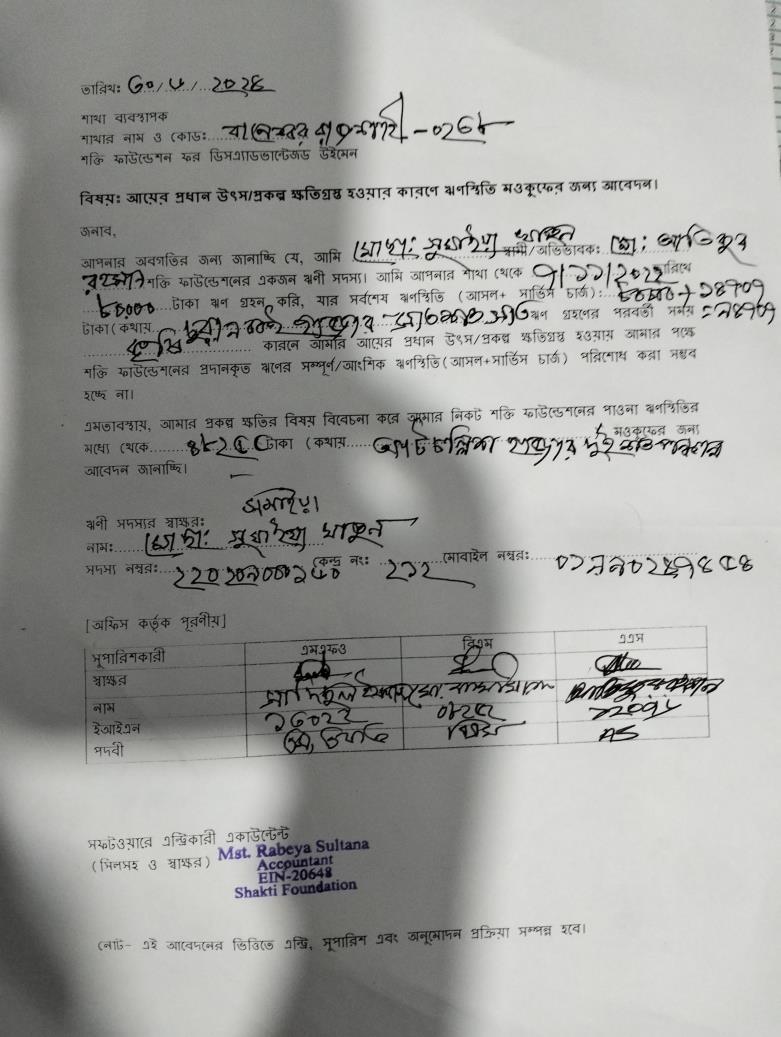 তারিখ: ৩০/৬/২০২৪
শাখা ব্যবস্থাপক
শাখার নাম ও কোড: বানেশ্বর রাজশাহী-০২৬৮
শক্তি ফাউন্ডেশন ফর ডিসএ্যাডভান্টেজড উইমেন
বিষয়: আয়ের প্রধান উৎস/প্রকল্প ক্ষতিগ্রস্থ হওয়ার কারণে ঋণস্থিতি মওকুফের জন্য আবেদন।
জনাব,
আপনার অবগতির জন্য জানাচ্ছি যে, আমি মোছা: সুমাইয়া খাতুন স্বামী/অভিভাবক: মো: আতিকুর
রহমান শক্তি ফাউন্ডেশনের একজন ঋণী সদস্য। আমি আপনার শাখা থেকে ৭/১১/২০২২ তারিখে
৮০০০০ টাকা ঋণ গ্রহন করি, যার সর্বশেষ ঋণস্থিতি (আসল+ সার্ভিস চার্জ):
টাকা(কথায় হাজার সাতশত সাত ঋণ গ্রহনের পরবর্তী সময়
কারনে আমার আয়ের প্রধান উৎস/প্রকল্প ক্ষতিগ্রস্থ হওয়ায় আমার পক্ষে
শক্তি ফাউন্ডেশনের প্রদানকৃত ঋণের সম্পূর্ণ/আংশিক ঋণস্থিতি(আসল+সার্ভিস চার্জ) পরিশোধ করা সম্ভব
হচ্ছে না।
এমতাবস্থায়, আমার প্রকল্প ক্ষতির বিষয় বিবেচনা করে আমার নিকট শক্তি ফাউন্ডেশনের পাওনা ঋণস্থিতির
মধ্যে থেকে ৪৮২৫৫ টাকা (কথায় আটচল্লিশ হাজার দুইশত পঞ্চান্ন মওকুফের জন্য
আবেদন জানাচ্ছি।
ঋণী সদস্যর স্বাক্ষর: সুমাইয়া
নাম: মোছা: সুমাইয়া খাতুন
সদস্য নম্বর: কেন্দ্র নং: ২১২ মোবাইল নম্বর:
[অফিস কর্তৃক পূরণীয়]
সুপারিশকারী এমএফও বিএম এএস
স্বাক্ষর
নাম
ইআইএন ১৬০২২
পদবী AS
সফটওয়্যারে এন্ট্রিকারী একাউন্টেন্ট
(সিলসহ ও স্বাক্ষর) Mst. Rabeya Sultana
Accountant
EIN-20648
Shakti Foundation
নোট- এই আবেদনের ভিত্তিতে এন্ট্রি, সুপারিশ এবং অনুমোদন প্রক্রিয়া সম্পন্ন হবে।